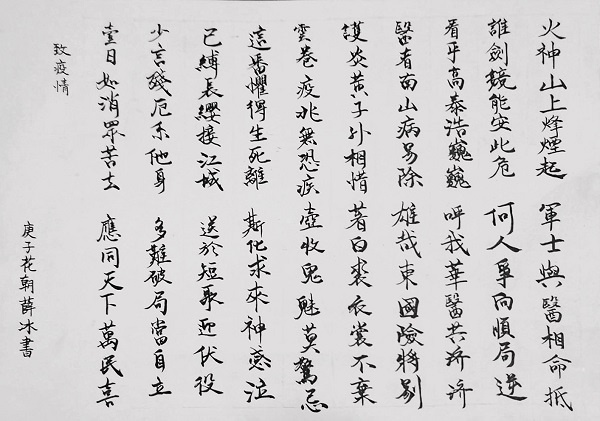 火神山上烽煙起 軍士與醫相命抵
誰劍競能安此危 何人爭向順局逆
看乎高泰浩巍巍 呼我華醫共濟濟
醫者南山病易除 雄哉東國險將剔
護炎黃子外相惜 著白裘衣裳不棄
雲卷疫兆無恐疾 壺收鬼魅莫驚忌
這番懼得生死離 斯化求來神惑泣
已縛長纓接江城 送於短歌迎伏役
少言殘厄系他身 多難破局當自立
壹日如消眾苦去 應同天下萬民喜
致疫情
庚子花朝薛冰書